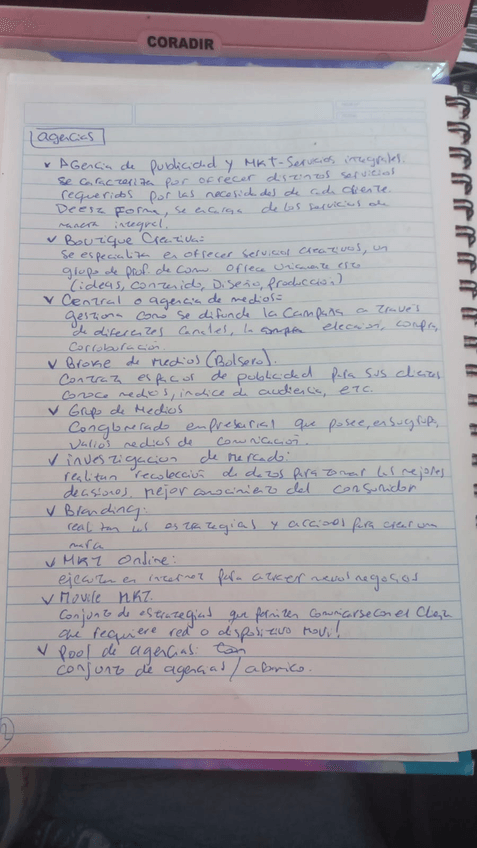 CORADIR
agencias
✓ Agencia de Publicidad y MKT-Servicios integrales.
Se caracteriza por ofrecer distintos servicios
requeridos por las necesidades de cada cliente.
De esta Forma, se encarga de los servicios de
manera integral.
✓ Boutique Creativa:
Se especializa en ofrecer servicios creativos, un
grupo de prof. de comu ofrece unicamente esto
(ideas, contenido, Diseño, producción)
✓ Central o agencia de medios:
gestiona como se difunde la Campaña a través
de diferentes Canales, la elección, compra,
corroboración.
✓ Broker de Medios (Bolsero).
Contrata espacios de publicidad para sus clientes
conoce medios, indice de audiencia, etc.
✓ Grupo de Medios
Conglomerado empresarial que posee, en su grupo,
varios medios de comunicación.
✓ investigacion de Mercado:
realizan recolección de datos para tomar las mejores
decisiones. mejor conocimiento del consumidor
✓ Branding:
realizan las estrategias y acciones para crear una
marca
✓ MKT Online:
ejecutan en internet para atraer nuevos negocios
✓ Movile MKT.
Conjunto de estrategias que permiten comunicarse con el Cliente
que requiere red o dispositivo Movil
✓ Pool de agencias:
conjunto de agencias/
2